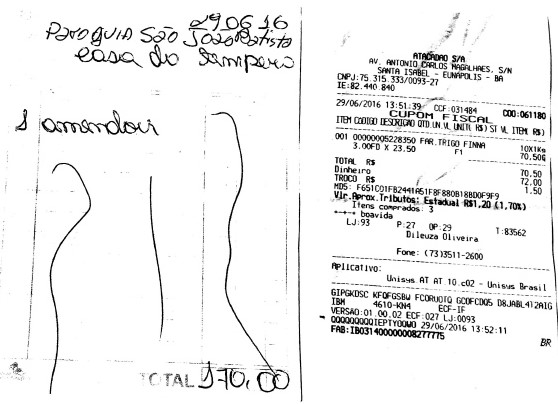 29 06 16
Paroquia São João Batista
casa do tempero
1 amendoi
TOTAL 170,00
ATACADAO S/A
AV. ANTONIO CARLOS MAGALHAES, S/N
SANTA ISABEL - EUNÁPOLIS - BA
CNPJ:75.315.333/0093-27
IE:82.440.840
29/06/2016 13:51:39 CCF:031484 COO:061180
CUPOM FISCAL
ITEM CODIGO DESCRICAO QTD.UN.VL UNIT( R$) ST VL ITEM( R$)
001 00000005228350 FAR.TRIGO FINNA 10X1Kg
3.00FD X 23.50 F1 70,50G
TOTAL R$ 70.50
Dinheiro 72.00
TROCO R$ 1.50
MD5: F651C01FB2441A51F8F880B18BD0F9F9
Vlr.Aprox.Tributos: Estadual R$1,20 (1,70%)
Itens comprados: 3
boavida
LJ:93 P:27 OP:29 T:83562
Dileuza Oliveira
Fone: (73)3511-2600
Aplicativo:
Unisys AT AT.10.c02 - Unisys Brasil
GIPGKDSC KFQFGSBW FCORUOTQ GCDFCDQ5 D8JABL412AIG
IBM 4610-KN4 ECF-IF
VERSAO:01.00.02 ECF:027 LJ:0093
00000000001EPTYOOWO 29/06/2016 13:52:11
FAB:IB031400000008277775 BR